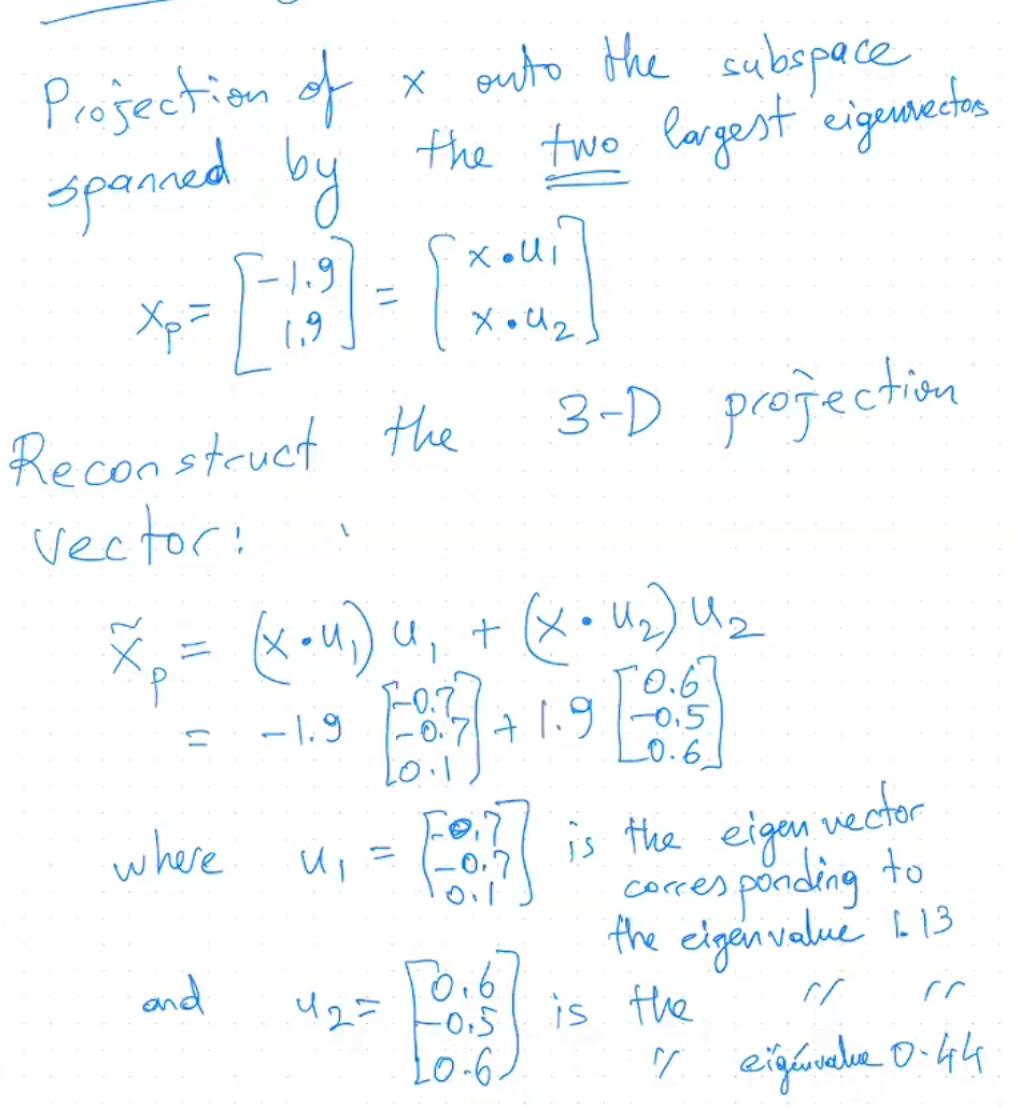 Projection of x onto the subspace
spanned by the two largest eigenvectors
x_p = [-1.9 1.9] = [x•u_1 x•u_2]
Reconstruct the 3-D projection
vector:
x̃_p = (x•u_1) u_1 + (x•u_2) u_2
= -1.9 [-0.7 -0.7 0.1] + 1.9 [0.6 -0.5 0.6]
where u_1 = [-0.7 -0.7 0.1] is the eigenvector
corresponding to
the eigenvalue 1.13
and u_2 = [0.6 -0.5 0.6] is the " "
" eigenvalue 0.44